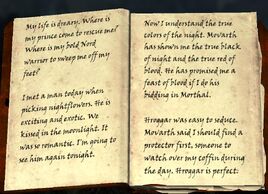 My life is dreary. Where is
my prince come to rescue me?
Where is my bold Nord
warrior to sweep me off my
feet?
I met a man today when
picking nightflowers. He is
exciting and exotic. We
kissed in the moonlight. It
was so romantic. I'm going to
see him again tonight.
Now I understand the true
colors of the night. Movarth
has shown me the true black
of night and the true red of
blood. He has promised me a
feast of blood if I do his
bidding in Morthal.
Hroggar was easy to seduce.
Movarth said I should find a
protector first, someone to
watch over my coffin during
the day. Hroggar is perfect.